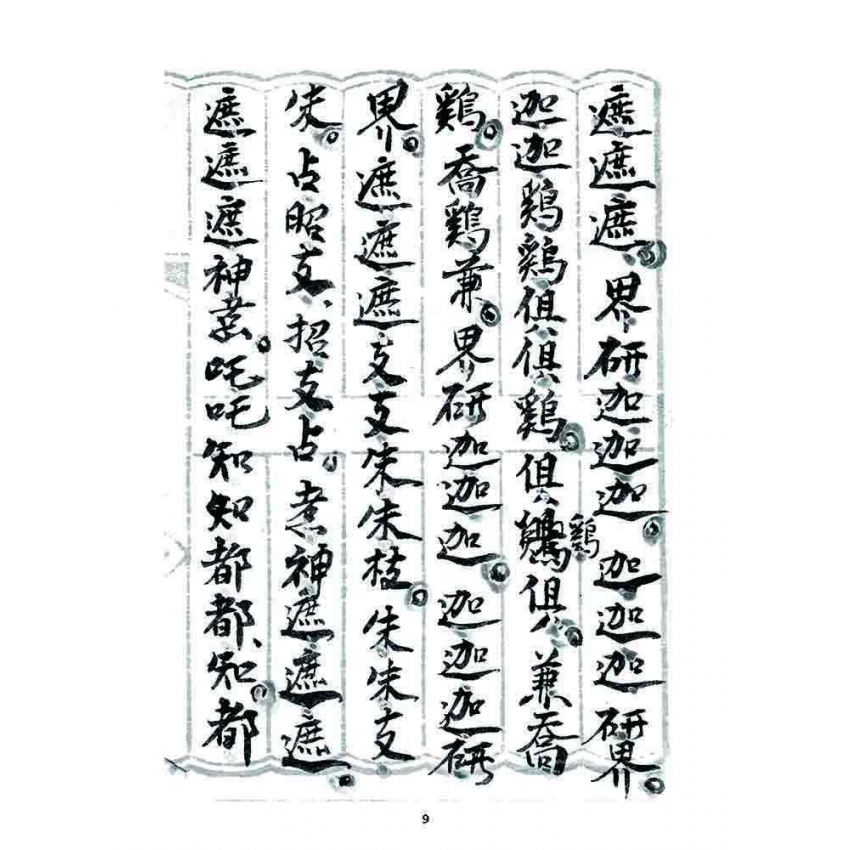 遮遮遮。界研迦迦迦。迦迦迦研界。
迦迦鷄鷄俱俱鷄。俱鷄俱。兼喬
鷄。喬鷄兼。界研迦迦迦。迦迦迦研
界。遮遮遮支支朱朱枝。朱朱支
朱。占昭支、招支占。煮神遮遮遮。
遮遮遮神煮。吒吒知知都都、知。都
9